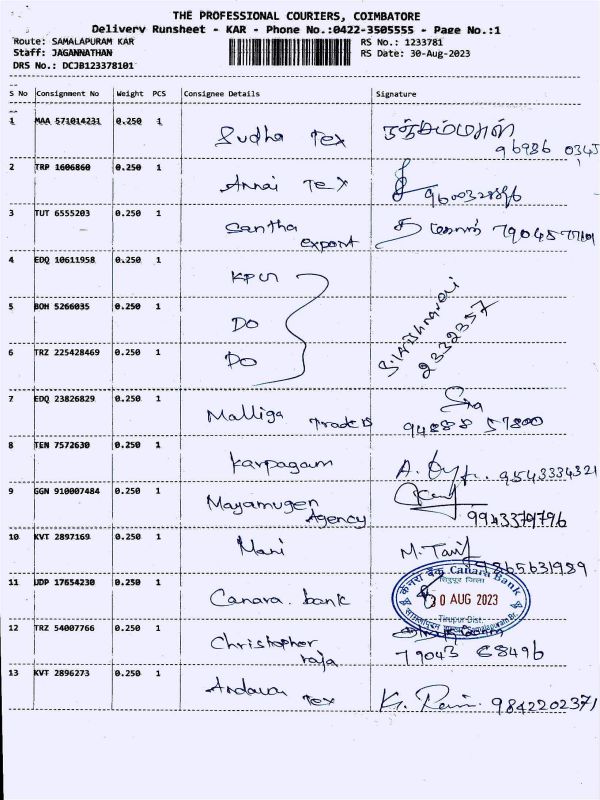 THE PROFESSIONAL COURIERS, COIMBATORE
Delivery Runsheet - KAR - Phone No.:0422-3505555 - Page No.:1
Route: SAMALAPURAM KAR RS No.: 1233781
Staff: JAGANNATHAN RS Date: 30-Aug-2023
DRS No.: DCJB123378101
S No Consignment No Weight PCS Consignee Details Signature
1 MAA 571014231 0.250 1 Sudha Tex
96986 0345
2 TRP 1606860 0.250 1 Annai Tex
3 TUT 6555203 0.250 1 Santha
export
4 EDQ 10611958 0.250 1 KPM
5 BOH 5266035 0.250 1 DO 2332357
6 TRZ 225428469 0.250 1 DO
7 EDQ 23826829 0.250 1 Malliga Traders
94888 57800
8 TEN 7572630 0.250 1 Karpagam 9543334321
9 GGN 910007484 0.250 1 Mayamugen
Agency 9943379796
10 KVT 2897169 0.250 1 Mani M. 9865631989
11 UDP 17654230 0.250 1 Canara. bank
केनरा बैंक Canara Bank
तिरुपुर जिला
30 AUG 2023
Tirupur Dist.
Samalapuram Br.
12 TRZ 54007766 0.250 1 Christopher
raja 79043 68496
13 KVT 2896273 0.250 1 Andavar
Tex 9842202371